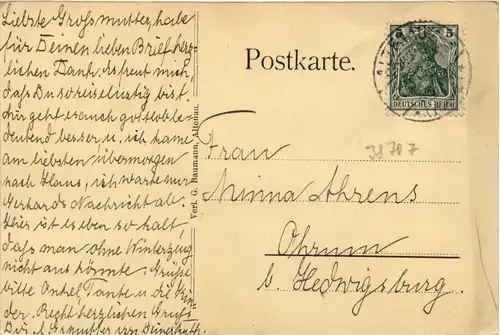 Liebste Großmutter, habe
für Deinen lieben Brief herz-
lichen Dank, es freut mich,
daß Du so reiselustig bist.
Mir geht es auch gottlob be-
deutend besser u. ich käme
am liebsten übermorgen
nach Haus, ich warte nur
Gerhards Nachricht ab.
Hier ist es eben so kalt
daß man ohne Winterzeug
nicht aus könnte. Grüße
bitte Onkel, Tante u. die Kin-
der. Recht herzlichen Gruß
Dir, l. Grmutter von Deiner
Verl. G. Baumann, Altenau.
Postkarte.
5 5
DEUTSCHES REICH
38707
Frau
Minna Ahrens
Ohrum
b. Hedwigsburg.